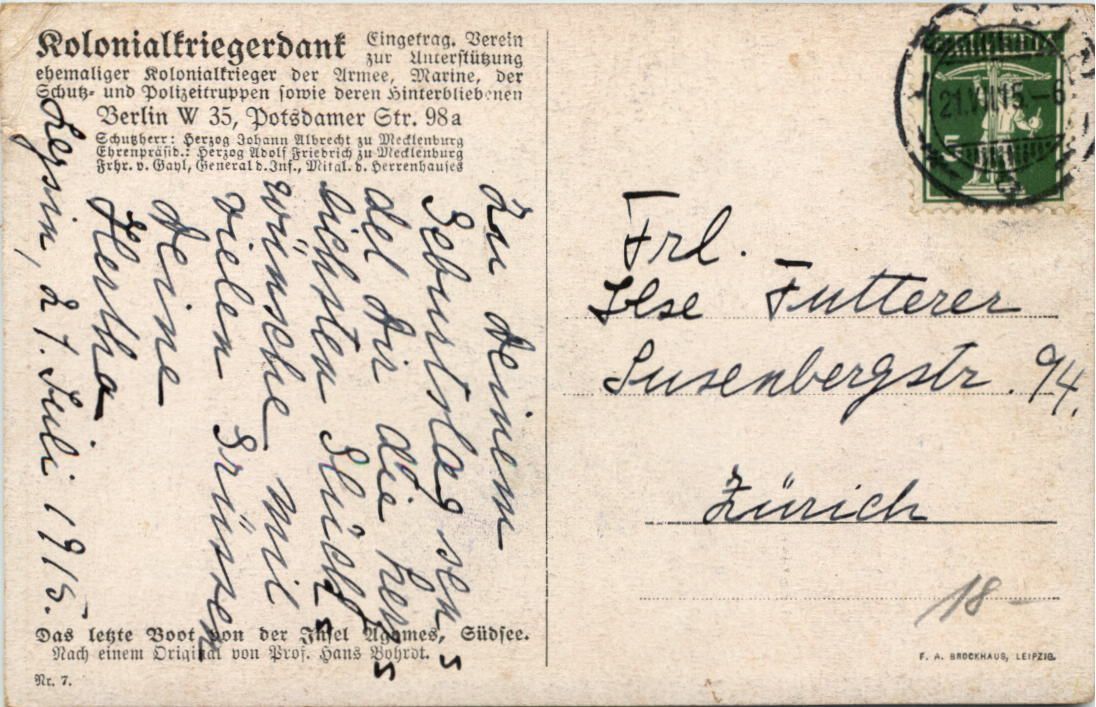 Kolonialkriegerdank Eingetrag. Verein
zur Unterstützung
ehemaliger Kolonialkrieger der Armee, Marine, der
Schutz- und Polizeitruppen sowie deren Hinterbliebenen
Berlin W 35, Potsdamer Str. 98a
Schutzherr: Herzog Johann Albrecht zu Mecklenburg
Ehrenpräsid.: Herzog Adolf Friedrich zu Mecklenburg
Frhr. v. Gayl, General d. Inf., Mitgl. d. Herrenhauses
Zu deinem
Geburtstag sen
det dir die herz
lichsten Glücks
wünsche mit
vielen Grüssen
deine
Hertha
21. Juli 1915.
Das letzte Boot von der Insel Agomes, Südsee.
Nach einem Original von Prof. Hans Bohrdt.
Nr. 7.
21.VII.15.-6
5
Frl.
Ilse Futterer
Susenbergstr. 94.
Zürich
18-
F. A. BROCKHAUS, LEIPZIG.